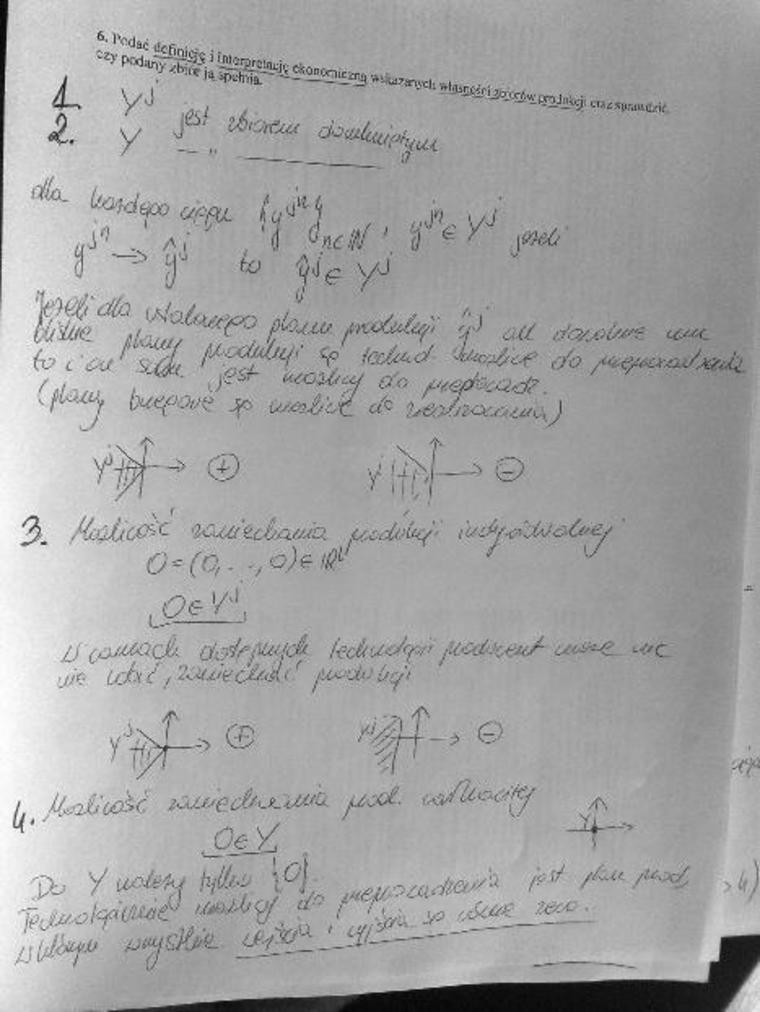 6. Podać definicję i interpretację ekonomiczną wskazanych własności zbiorów produkcji oraz sprawdzić,
czy podany zbiór ją spełnia.
1. Y^j jest zbiorem domkniętym
2. Y — „ —
dla każdego ciągu {y^{jn}}_{n∈ℕ}, y^{jn} ∈ Y^j jeżeli
y^{jn} → ŷ^j to ŷ^j ∈ Y^j
Jeżeli dla ustalonego planu produkcji ŷ^j dowolnie
bliskie plany produkcji są technol. możliwe do przeprowadzenia
to i on sam jest możliwy do przeprowadz.
(plany brzegowe są możliwe do zrealizowania)
Y^j +
Y^j −
3. Możliwość zaniechania produkcji indywidualnej
0 = (0, ..., 0) ∈ ℝ^l
0 ∈ Y^j
W ramach dostępnych technologii producent może nic
nie robić, zaniechać produkcji
Y^j +
Y^j −
4. Możliwość zaniechania prod. całkowitej
0 ∈ Y
Y
Do Y należy tylko {0}.
Technologicznie możliwy do przeprowadzenia jest plan prod.
w którym wszystkie wejścia i wyjścia są równe zero.